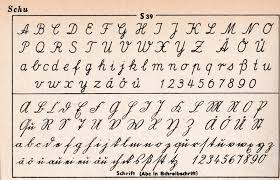 Schu
S 39
A B C D E F G H I J K L M N O
P Q R S T U V W X Y Z Ä Ö Ü
a b c d e f g h i j k l m n o p q r s t u
v w x y z ä ö ü 1 2 3 4 5 6 7 8 9 0
A B C D E F G H I J K L M N O P
Qu R S T U V W X Y Z Ä Ö Ü
a b c d e f g h i j k l m n o p q r s t u v w x y z
1 2 3 4 5 6 7 8 9 0
Schrift (Abc in Schreibschrift)